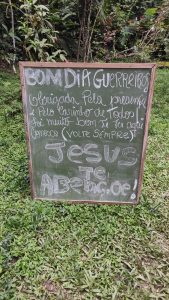 BOM DIA GUERREIROS
Obrigada Pela presença
e Pelo Carinho de Todos!
muito bom Te Ter aqui
conosco (VOLTE SEMPRE)
JESUS
TE
ABENÇOE!